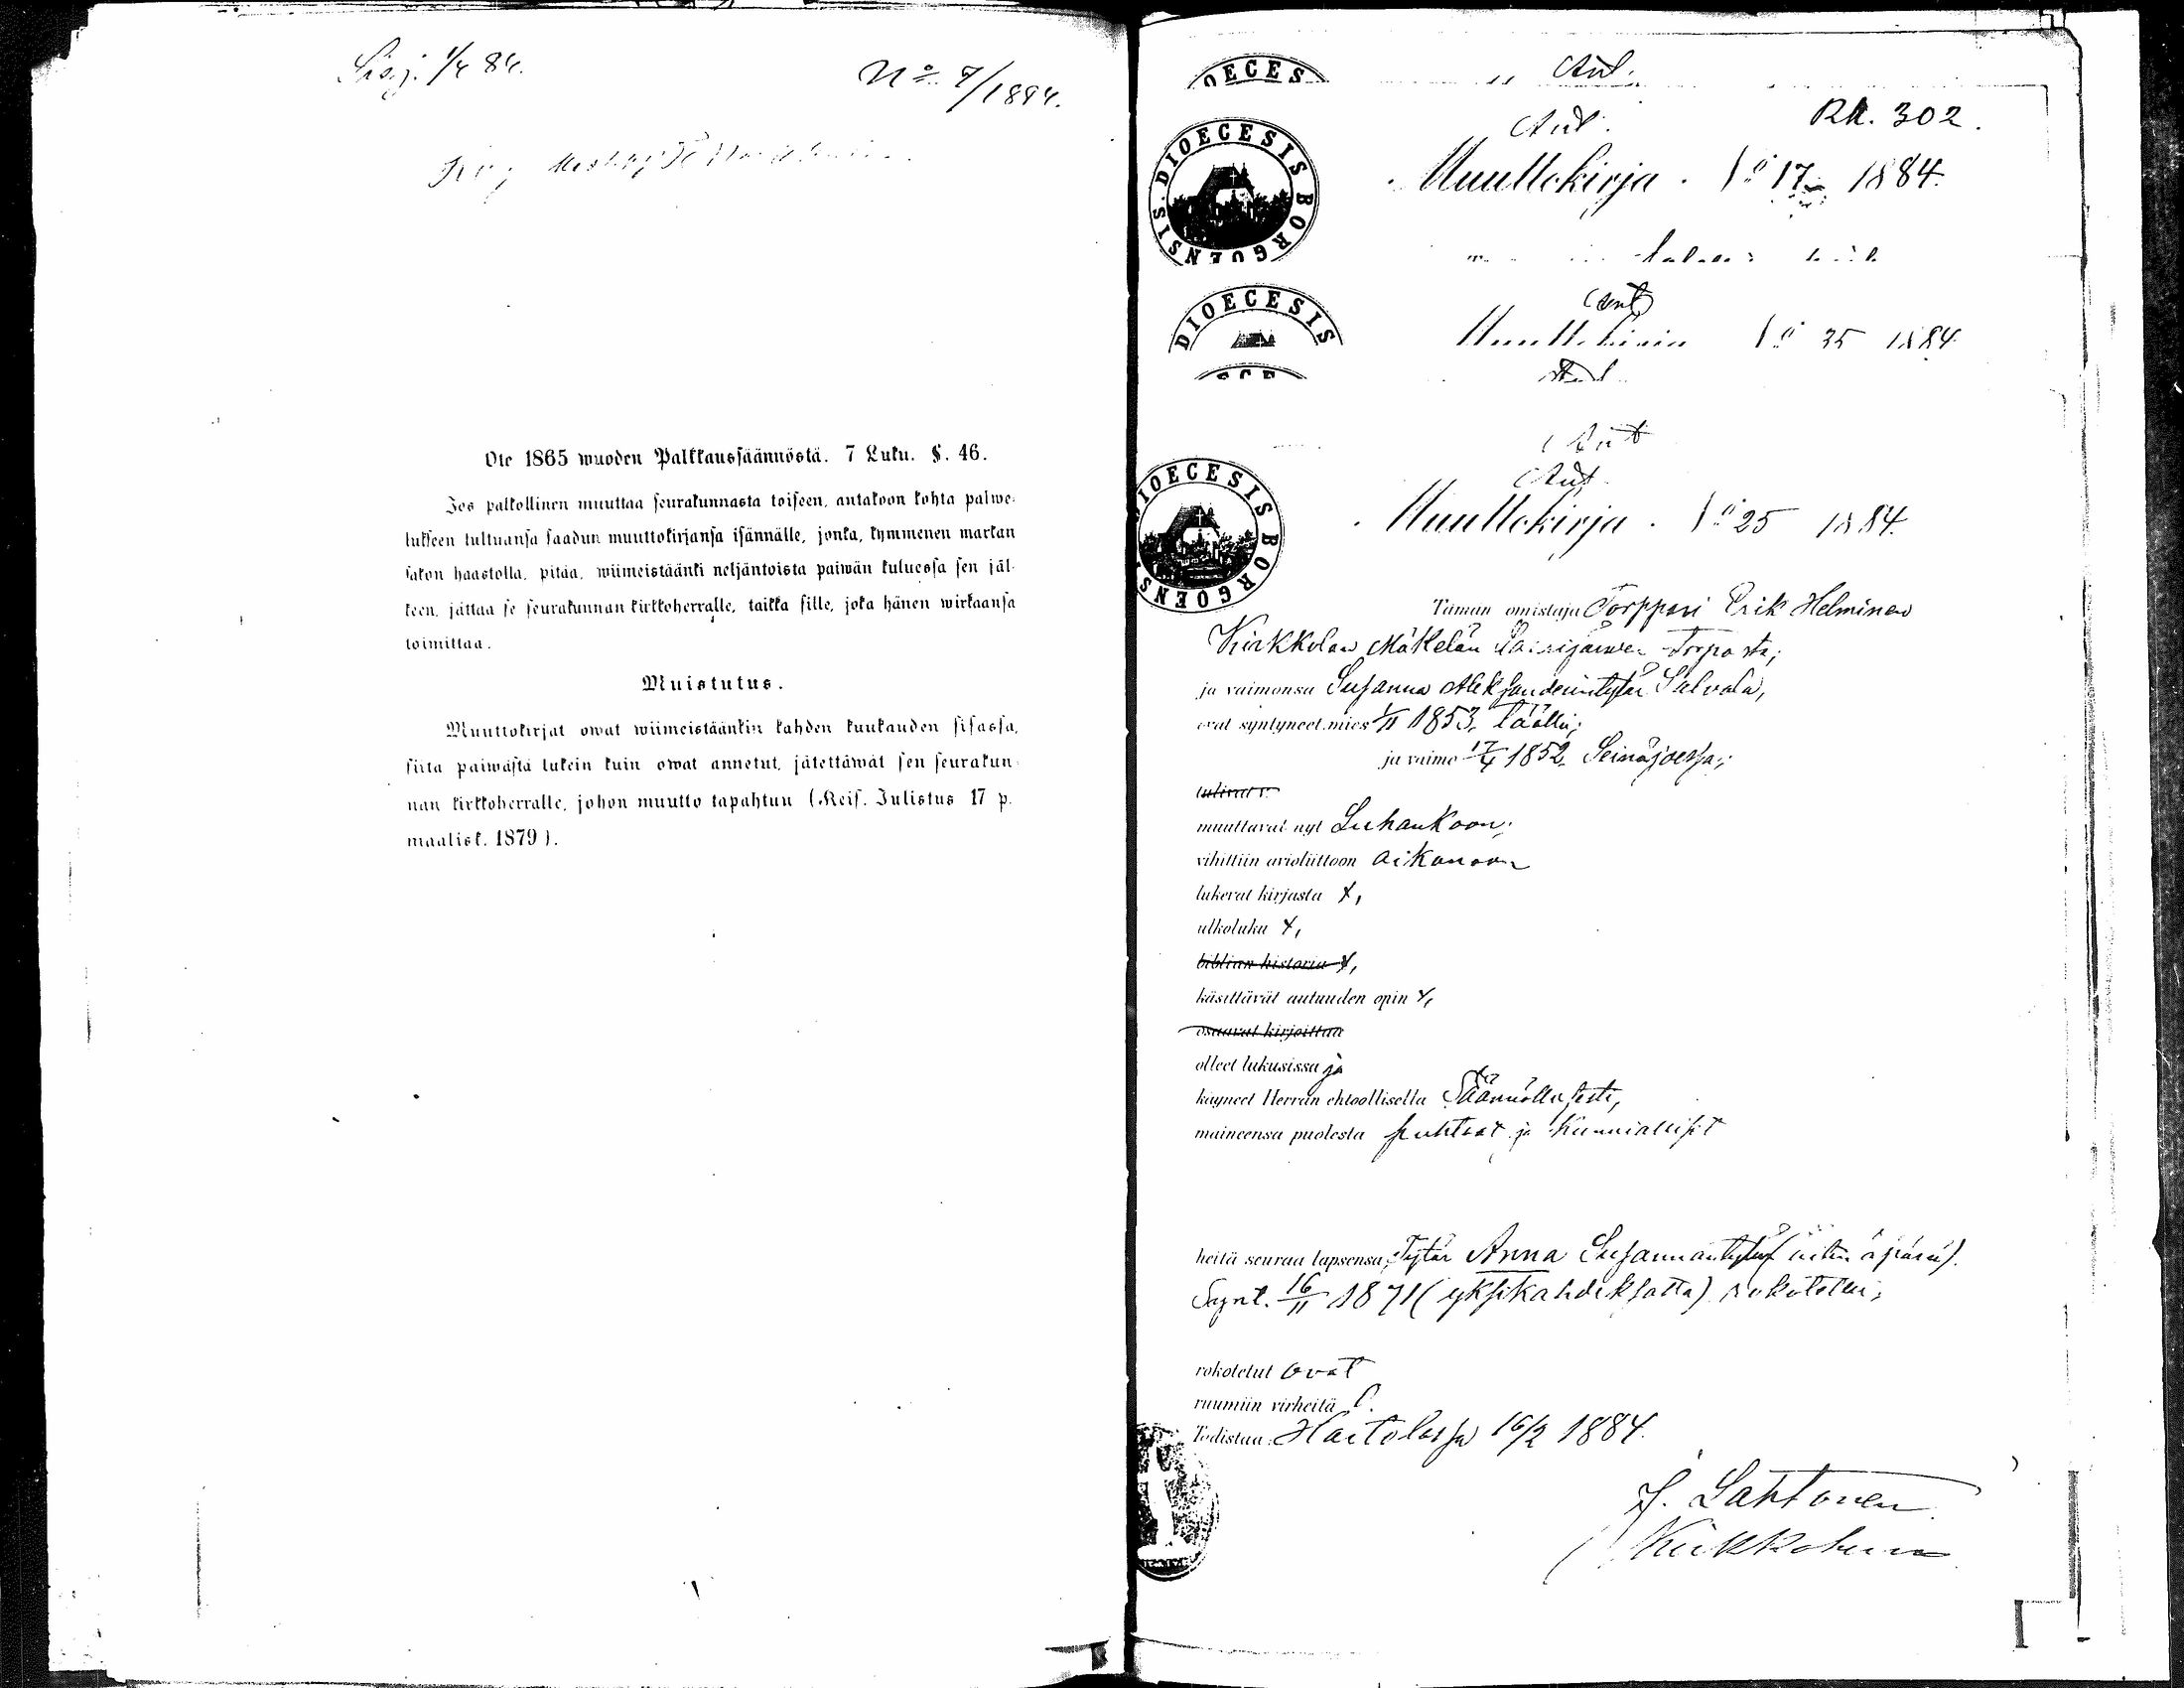 Sisj. 1/4 84.
No 7/1884.
Ote 1865 wuoden Palkkaussäännöstä. 7 Luku. §. 46.
Jos palkollinen muuttaa seurakunnasta toiseen, antakoon kohta palwe-
lukseen tultuansa saadun muuttokirjansa isännälle, jonka, kymmenen markan
sakon haastolla, pitää, wiimeistäänki neljäntoista päiwän kuluessa sen jäl-
keen, jättää se seurakunnan kirkkoherralle, taikka sille, joka hänen wirkaansa
toimittaa.
Muistutus.
Muuttokirjat owat wiimeistäänkin kahden kuukauden sisässä,
siitä päiwästä lukein kuin owat annetut, jätettäwät sen seurakun-
nan kirkkoherralle, johon muutto tapahtuu (Keis. Julistus 17 p.
maalisk. 1879).
OECES
Aut.
Rk. 302.
DIOECESIS BORGOENSIS.
Muuttokirja. No 17 1884.
DIOECESIS
Muuttokirja No 25 1884
Aut.
DIOECESIS BORGOENSIS
Muuttokirja. No 25 1884.
Tämän omistaja Torppari Erik Helminen
Kirkkolan Mäkelän torpasta;
ja vaimonsa Susanna Aleksanderintytär Salvala,
ovat syntyneet, mies 1/11 1853, täällä;
ja vaimo 17/4 1852, Seinäjoessa;
tulivat v.
muuttavat nyt Luhankoon;
vihittiin avioliittoon aikanaan
lukevat kirjasta x,
ulkoluku x,
biblian historia x,
käsittävät autuuden opin x,
osaavat kirjoittaa
olleet lukusissa ja
käyneet Herran ehtoollisella Säännöllisesti,
maineensa puolesta puhtaat ja kunnialliset
heitä seuraa lapsensa; Tytär Anna Susannantytär (äitin äpärä).
Synt. 16/11 1871 (yksikahdeksatta) rokotettu;
rokotetut ovat
ruumiin virheitä 0.
Todistaa: Hartolassa 16/2 1884.
J. Lahtonen
Kirkkoherra